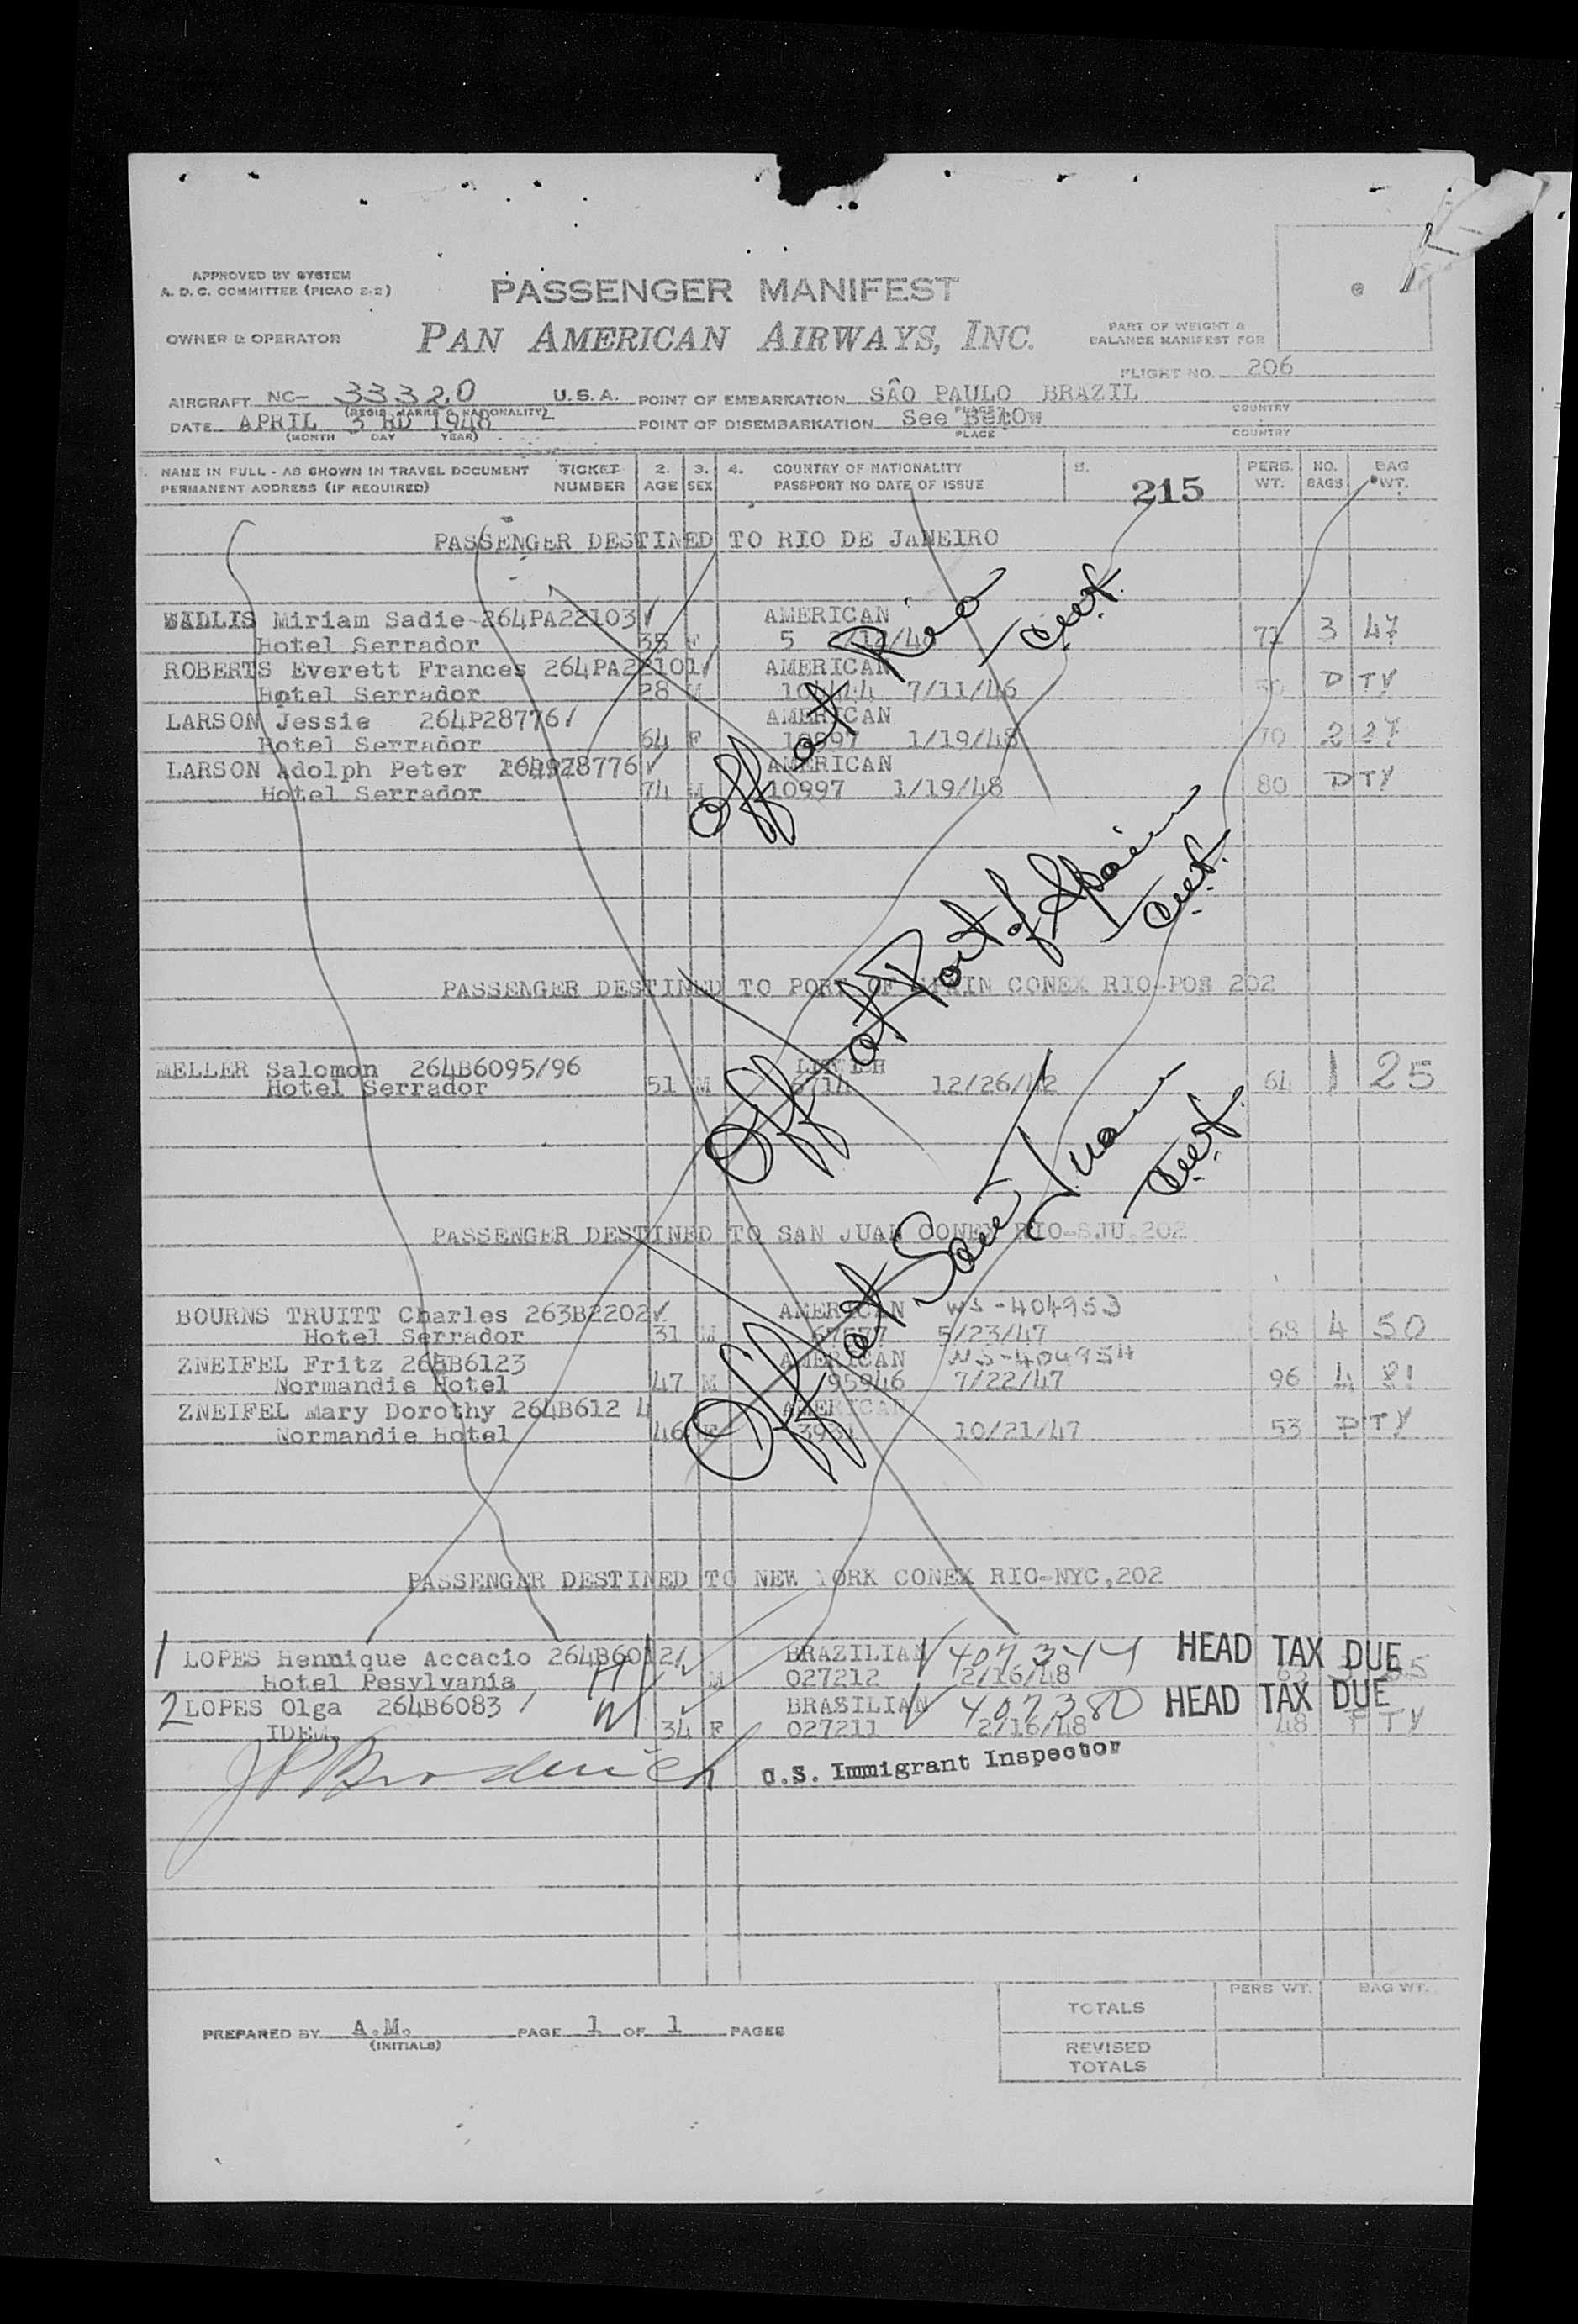 APPROVED BY SYSTEM
A. D. C. COMMITTEE (PICAO 2-2)
PASSENGER MANIFEST
OWNER & OPERATOR PAN AMERICAN AIRWAYS, INC.
PART OF WEIGHT &
BALANCE MANIFEST FOR
FLIGHT NO. 206
AIRCRAFT NC- 33320 U.S.A. POINT OF EMBARKATION SÃO PAULO BRAZIL
(REGIS. MARKS & NATIONALITY) PLACE COUNTRY
DATE APRIL 3 RD 1948 POINT OF DISEMBARKATION See Below
(MONTH DAY YEAR) PLACE COUNTRY
NAME IN FULL - AS SHOWN IN TRAVEL DOCUMENT TICKET 2. 3. 4. COUNTRY OF NATIONALITY 5. PERS. NO. BAG
PERMANENT ADDRESS (IF REQUIRED) NUMBER AGE SEX PASSPORT NO DATE OF ISSUE 215 WT. BAGS WT.
PASSENGER DESTINED TO RIO DE JANEIRO
Miriam Sadie 264PA22103 AMERICAN
Hotel Serrador 35 F 5 3 47
ROBERTS Everett Frances 264PA22101 AMERICAN
Hotel Serrador 28 M 7/11/46 D TY
LARSON Jessie 264P28776 AMERICAN
Hotel Serrador 64 F 10997 1/19/48 70 2 27
LARSON Adolph Peter 264P28776 AMERICAN
Hotel Serrador 74 M 10997 1/19/48 80 D TY
off at Rio
PASSENGER DESTINED TO PORT OF SPAIN CONEX RIO-POS 202
MELLER Salomon 264B6095/96
Hotel Serrador 51 M 12/26/42 64 1 25
Off at Port of Spain
PASSENGER DESTINED TO SAN JUAN CONEX RIO-SJU.202
BOURNS TRUITT Charles 263B2202 AMERICAN WS-404953
Hotel Serrador 31 M 5/23/47 68 4 50
ZNEIFEL Fritz 264B6123 AMERICAN WS-404954
Normandie Hotel 47 M 95946 7/22/47 96 4 81
ZNEIFEL Mary Dorothy 264B612 4 AMERICAN
Normandie Hotel 46 F 10/21/47 53 D TY
Off at San Juan
PASSENGER DESTINED TO NEW YORK CONEX RIO-NYC,202
1 LOPES Hennique Accacio 264B6012 BRAZILIAN 407344 HEAD TAX DUE
Hotel Pesylvania H M 027212 2/16/48
2 LOPES Olga 264B6083 BRASILIAN 407380 HEAD TAX DUE
IDEM. W 34 F 027211 2/16/48 48 TY
J P Broderick U.S. Immigrant Inspector
PERS WT. BAG WT.
TOTALS
PREPARED BY A.M. PAGE 1 OF 1 PAGES
(INITIALS)
REVISED
TOTALS